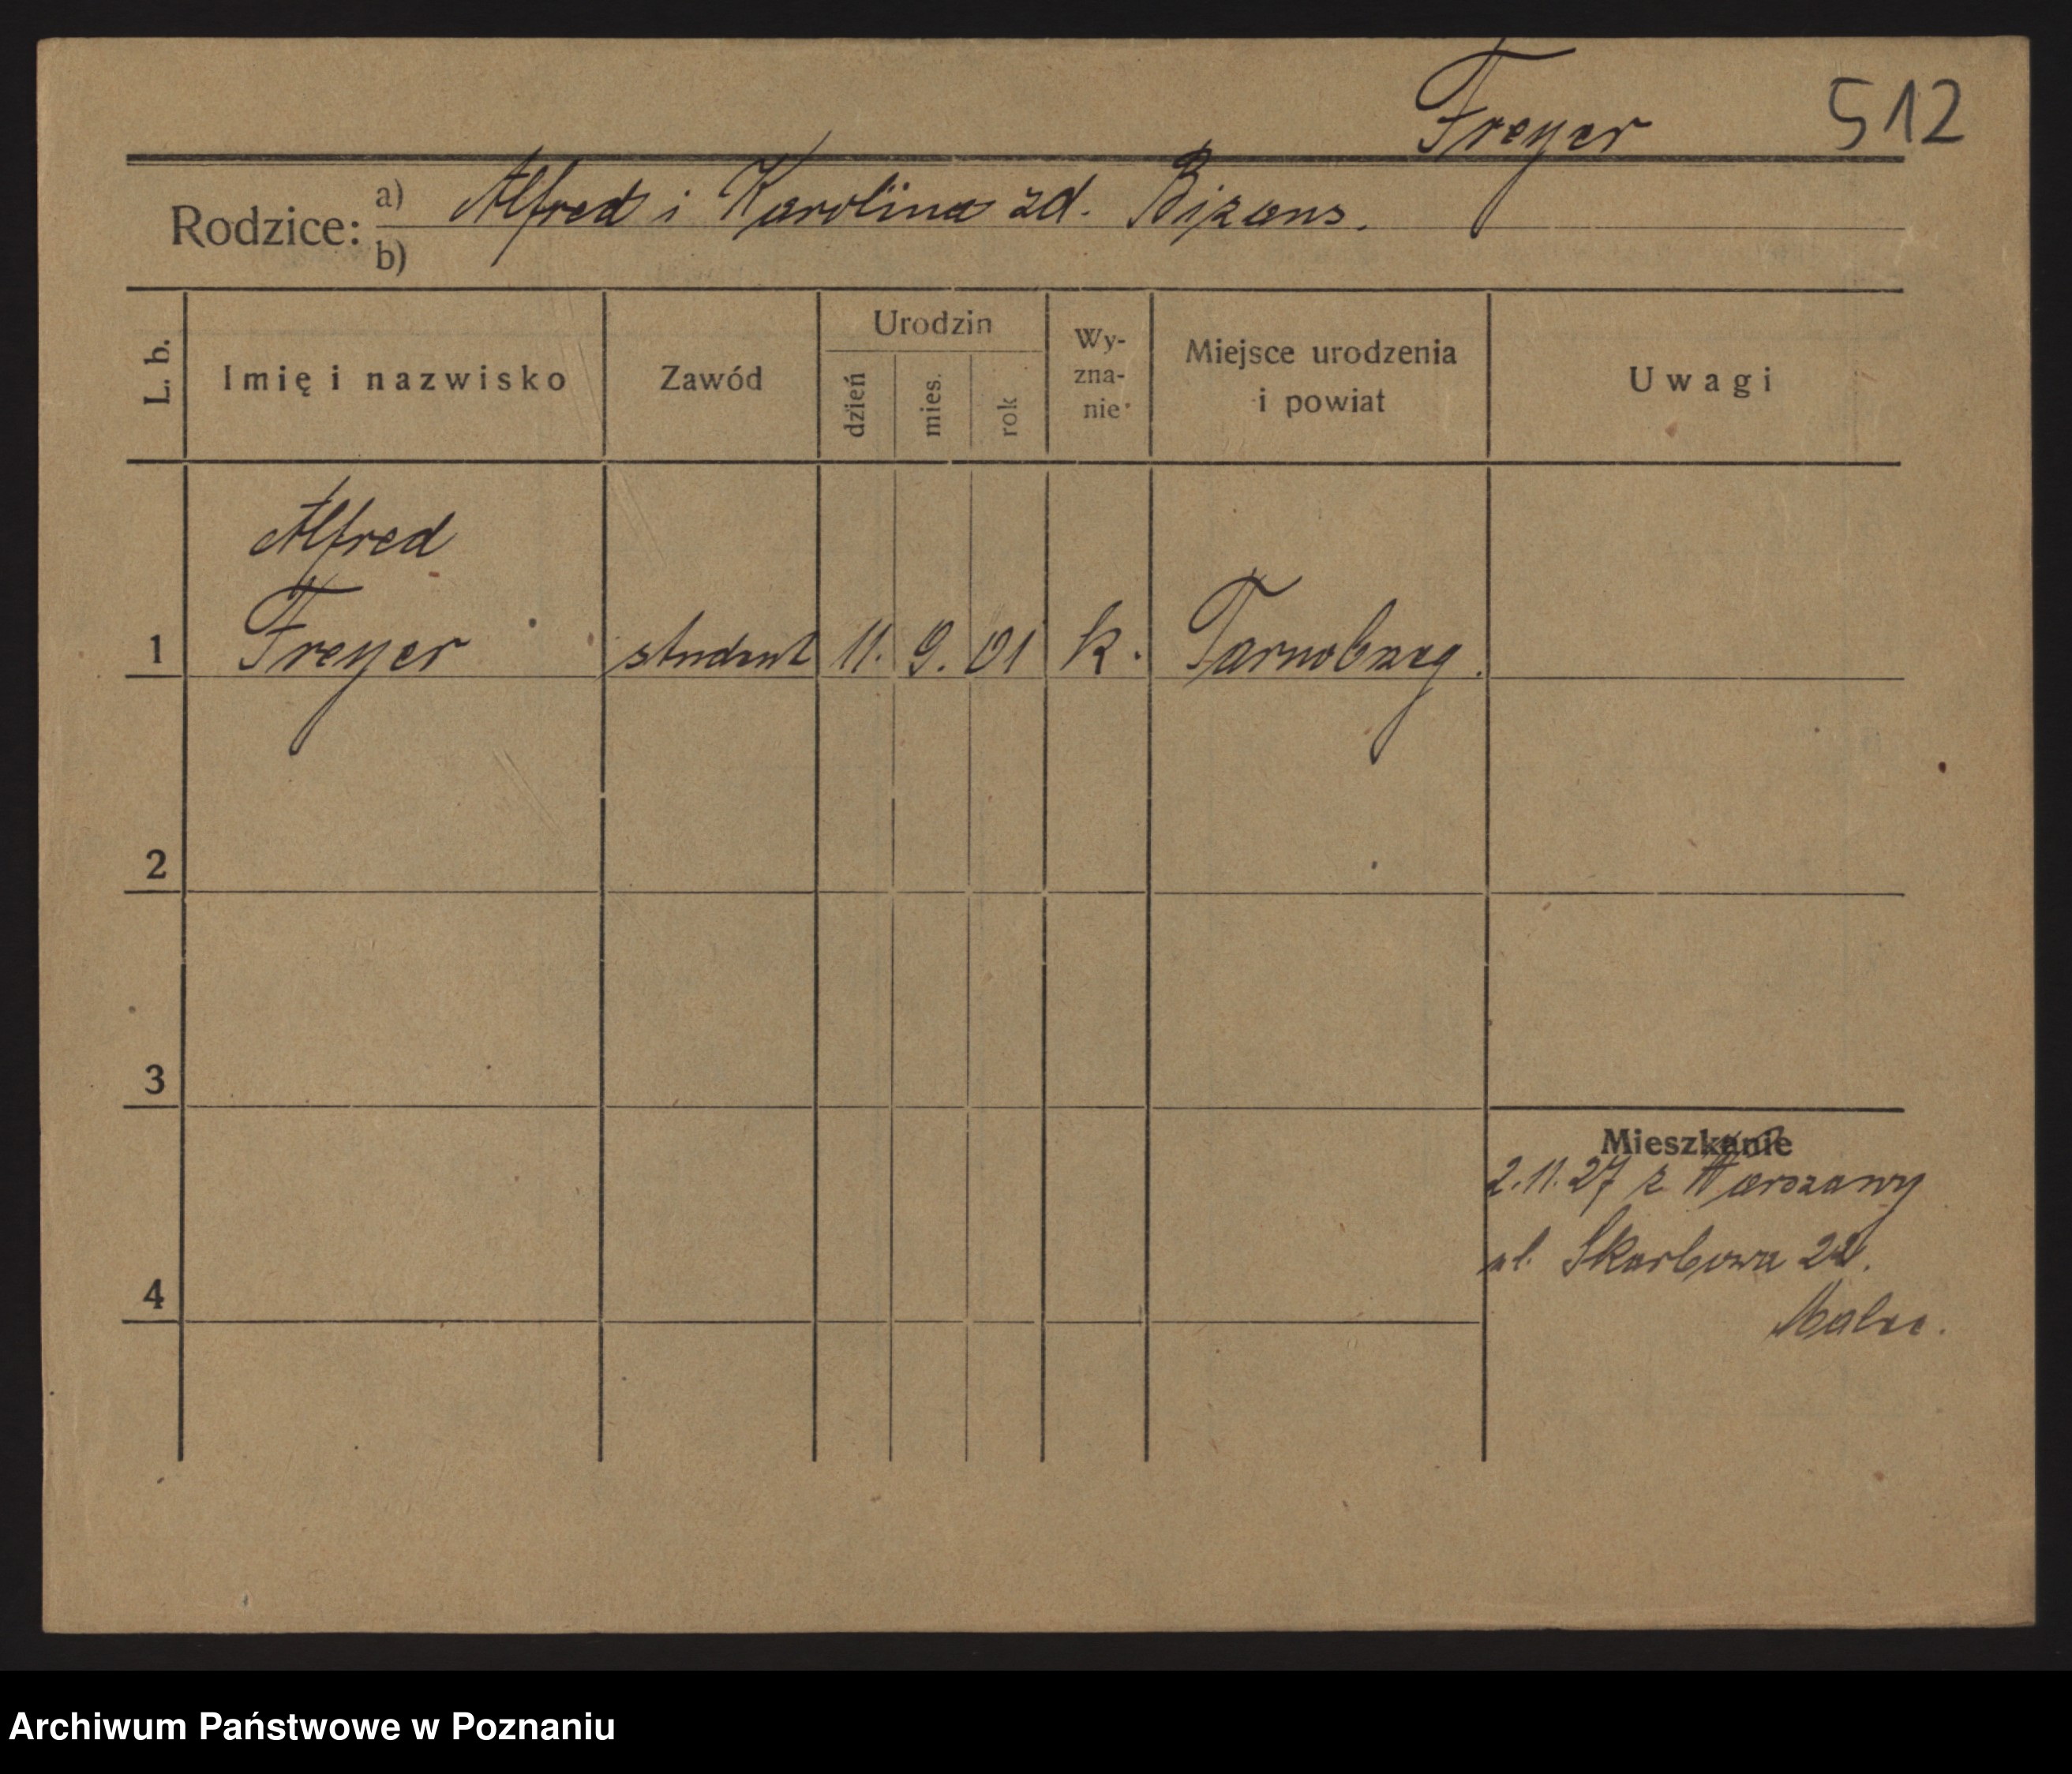 Freyer 512
Rodzice: a) Alfred i Karolina zd. Bizans.
b)
L. b. Imię i nazwisko Zawód Urodzin dzień mies. rok Wy-zna-nie Miejsce urodzenia i powiat Uwagi
Alfred
1 Freyer student 11. 9. 01 k. Tarnobrzeg.
2
3
Mieszkanie
2.11.27 z Warszawy
4 ul. Skarbowa 22.
Archiwum Państwowe w Poznaniu